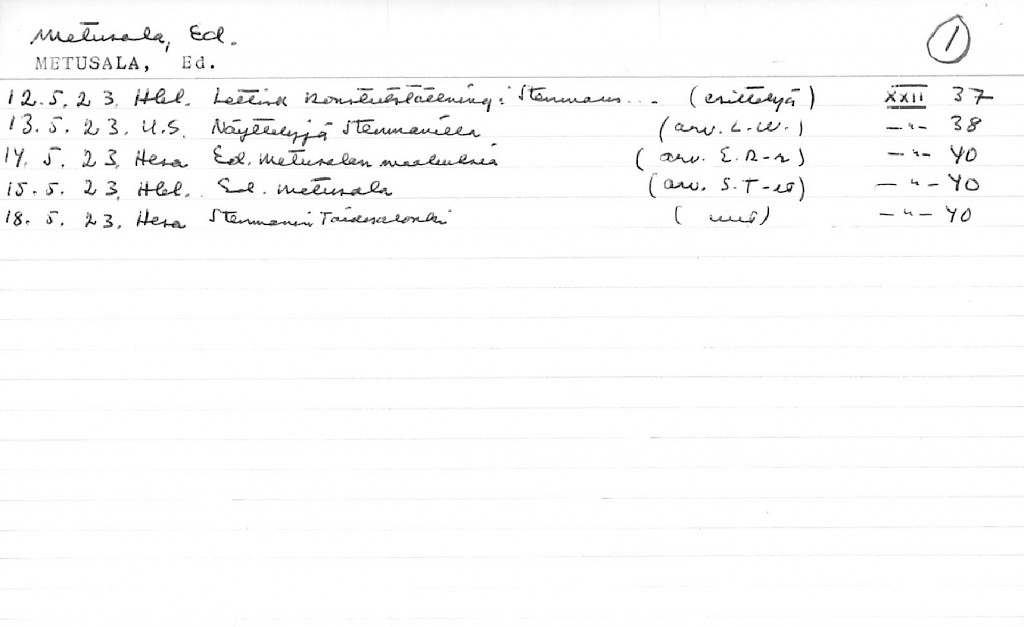 Metusala, Ed.
①
METUSALA, Ed.
12.5.23. Hbl. Lettisk konstutställning i Stenmans... (esittelyä) XXII 37
13.5.23. U.S. Näyttelyjä Stenmanilla (arv. L.W.) -"- 38
14.5.23. Hesa Ed. Metusalan maalauksia (arv. E.R-r) -"- 40
15.5.23. Hbl. Ed. Metusala (arv. S.T-ts) -"- 40
18.5.23. Hesa Stenmanin Taidesalonki (uut) -"- 40